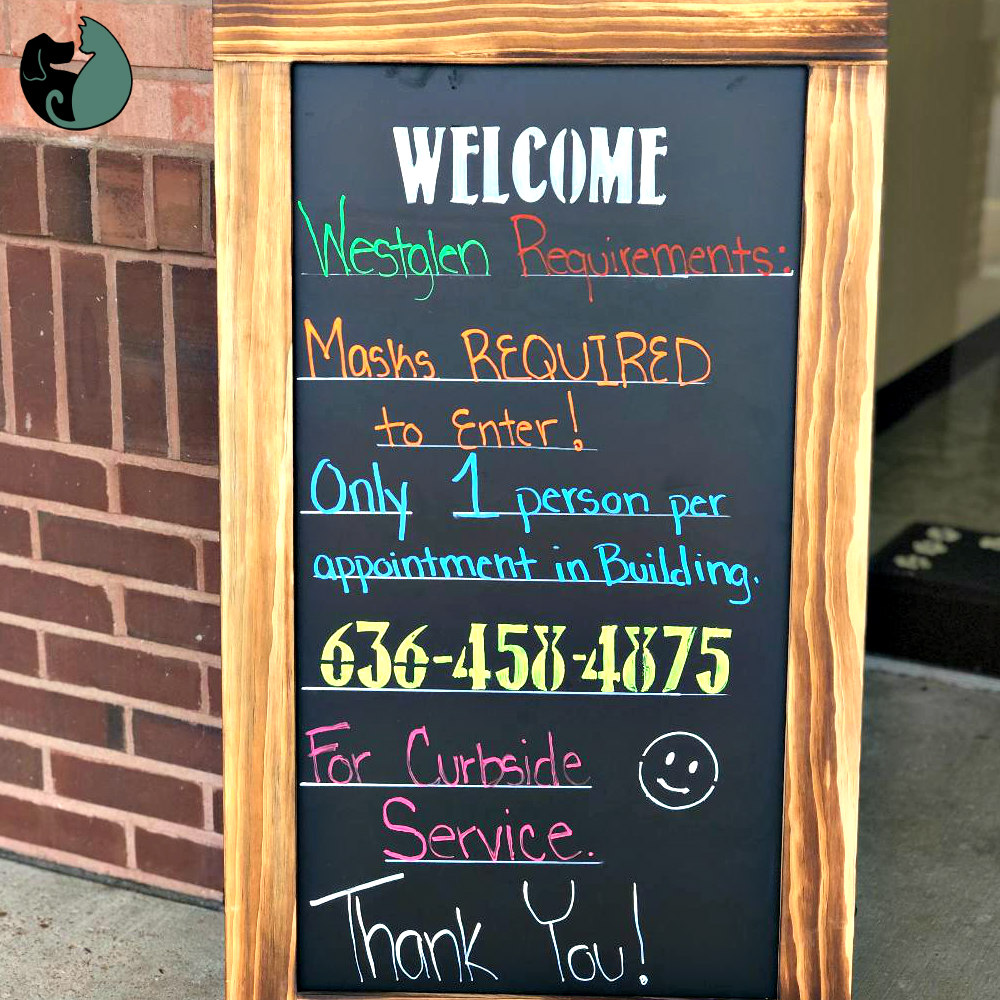 WELCOME
Westglen Requirements:
Masks REQUIRED
to Enter!
Only 1 person per
appointment in Building.
636-458-4875
For Curbside
Service.
Thank You!